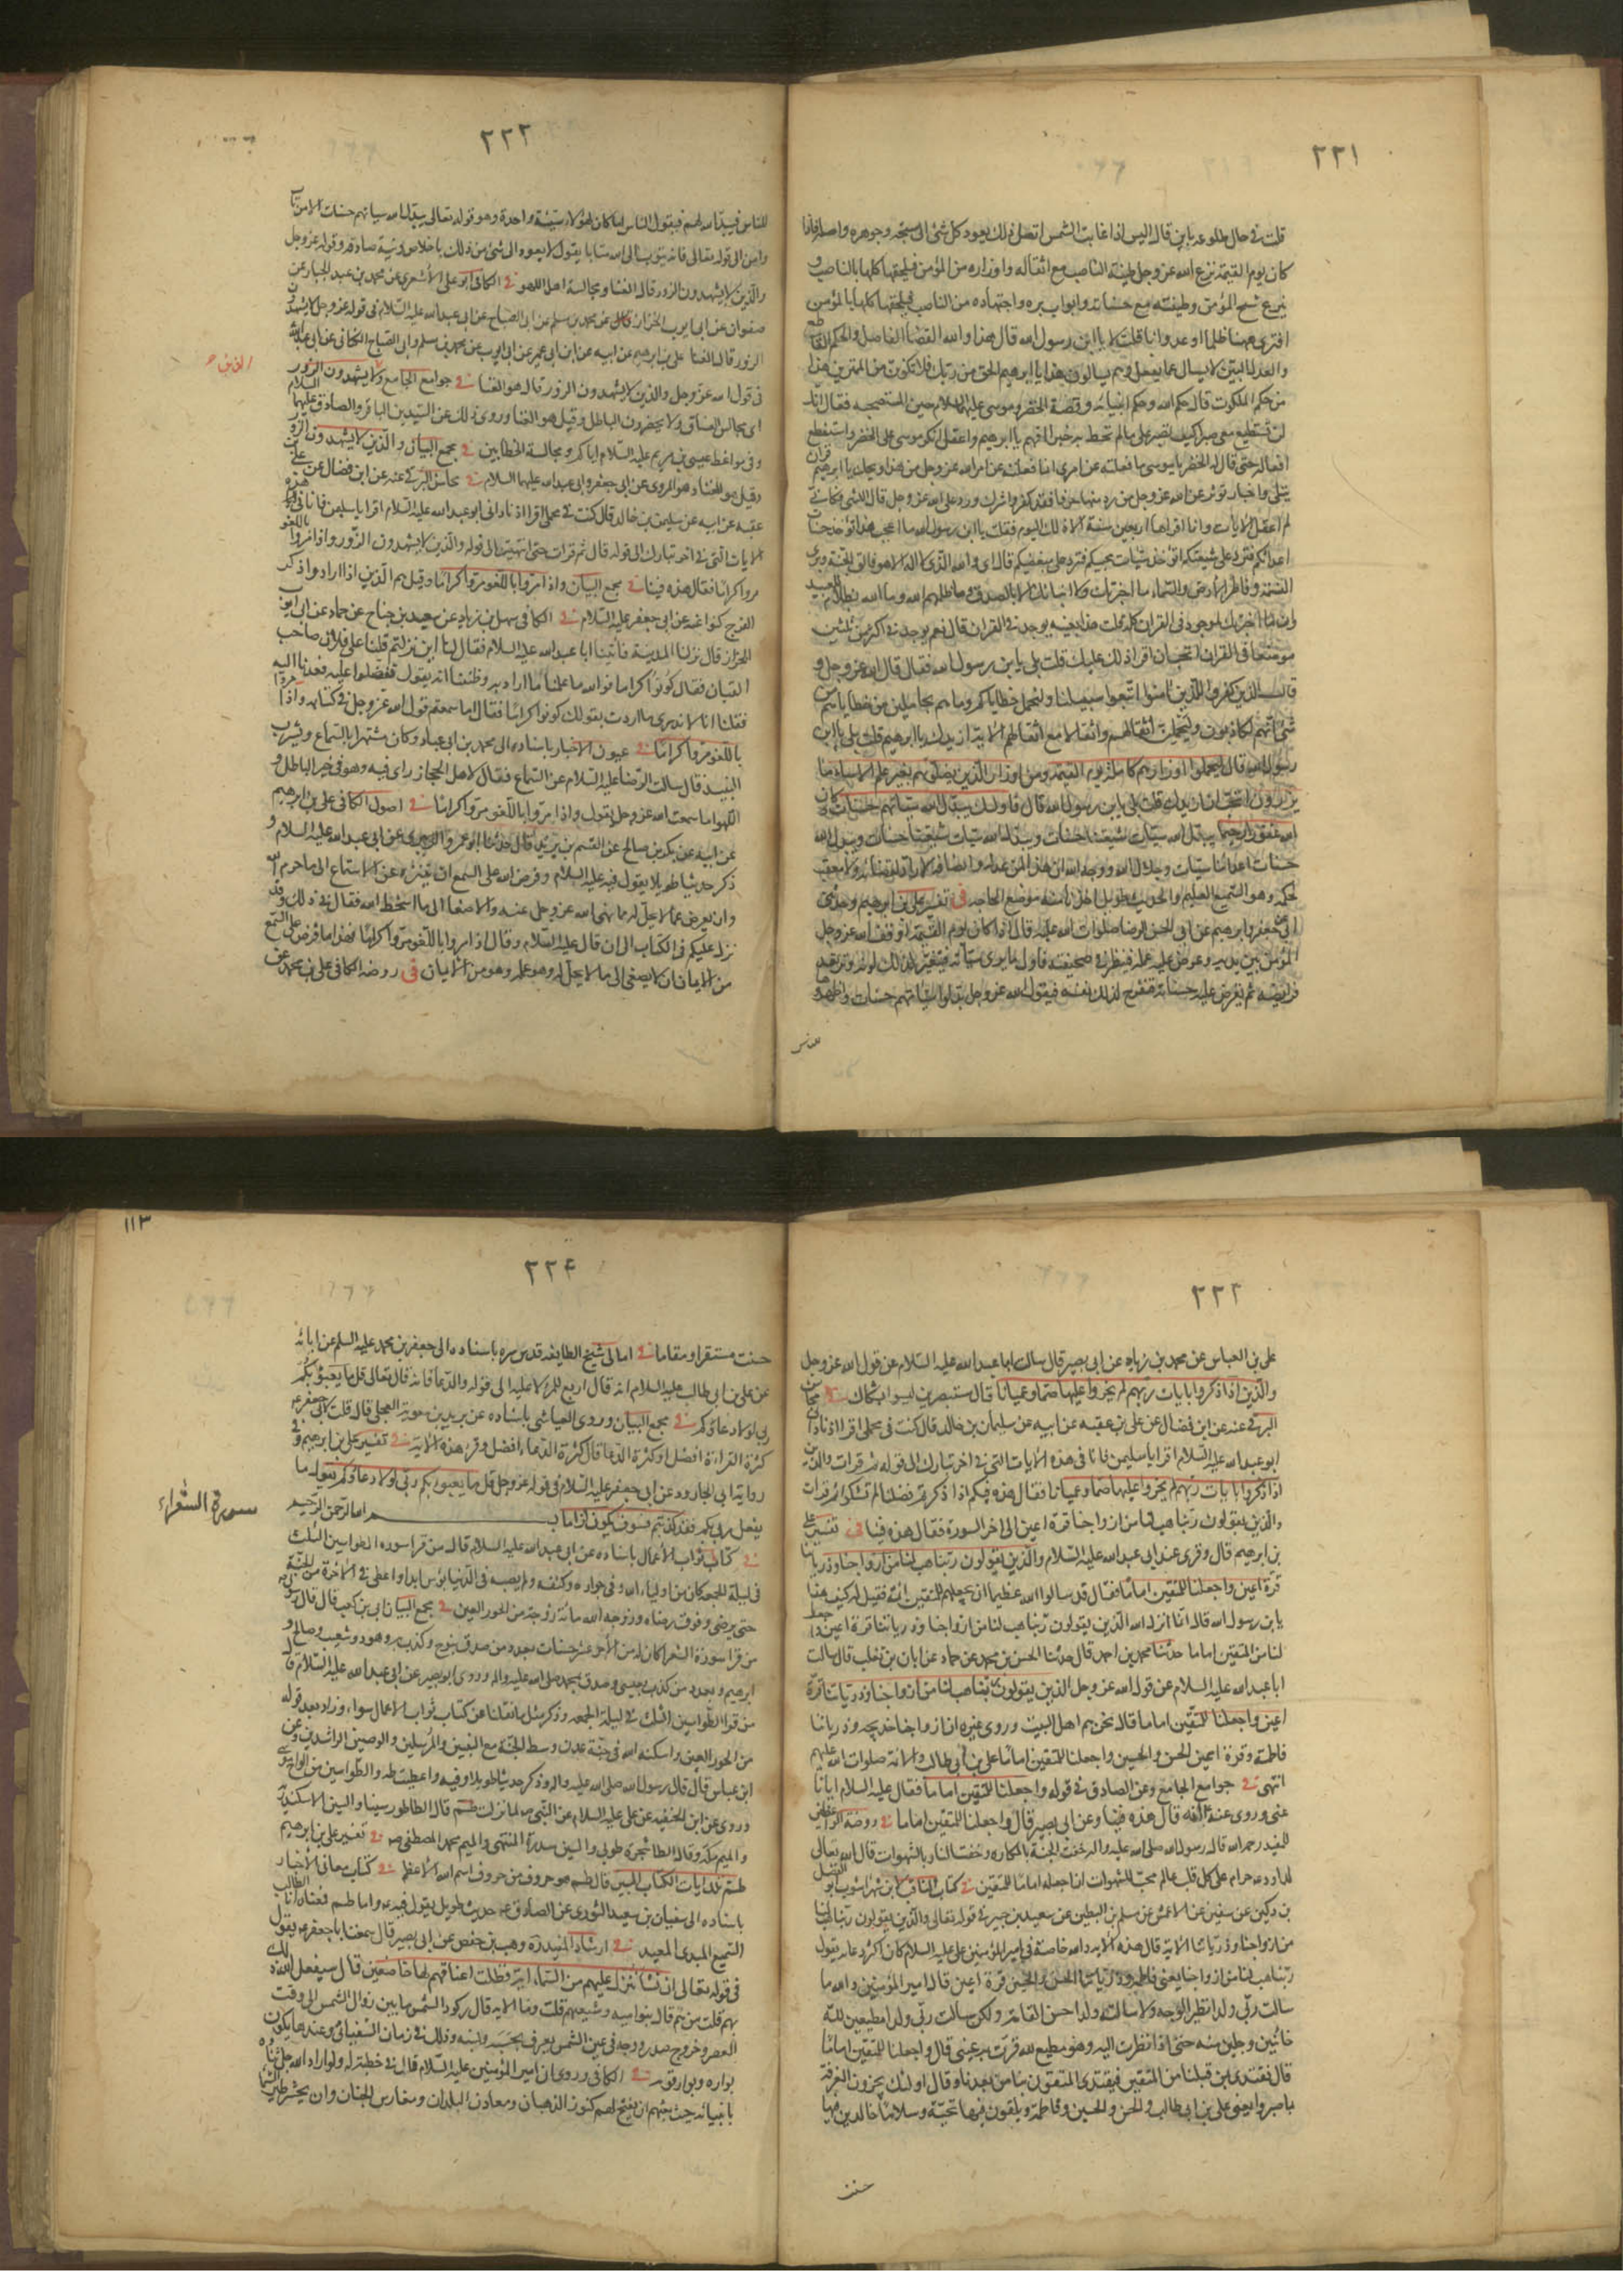 ٢٢١
قلت في حال طلوعه باين قال اليس اذا غابت الشمس اتصل ذلك يعود كل شئ الى سنخه وجوهره واصله فاذا
كان يوم القيمة نزع الله عز وجل طينة الناصب مع اثقاله واوزاره من المؤمن فيلحقها كلها بالناصب و
ينزع سنخ المؤمن وطينته مع حسناته وابواب بره واجتهاده من الناصب فيلحقها كلها بالمؤمن
افترى ههنا ظلما او عدوانا قلت لا يا ابن رسول الله قال هذا والله القضاء الفاصل والحكم القاطع
والعدل البين لا يسال عما يفعل وهم يسالون هذا يا ابرهيم الحق من ربك فلا تكونن من الممترين هذا
من حكم الملكوت قال حكم الله وحكم انبيائه وقصة الخضر وموسى عليهما السلام حين استصحبه فقال انك
لن تستطيع معى صبرا وكيف تصبر على ما لم تحط به خبرا افهم يا ابرهيم واعقل انكر موسى على الخضر واستفظع
افعاله حتى قال له الخضر يا موسى ما فعلته عن امرى انما فعلته عن امر الله عز وجل من هذا ويحك يا ابرهيم قرآن
يتلى واخبار تؤثر عن الله عز وجل من رد منها حرفا فقد كفر واشرك ورد على الله عز وجل قال الليثى فكانى
لم اعقل الايات وانا اقراها اربعين سنة الا ذلك اليوم فقلت يا ابن رسول الله ما اعجب هذا تؤخذ حسنات
اعدائكم فترد على شيعتكم وتؤخذ سيئات محبيكم فترد على مبغضيكم قال اى والله الذى لا اله الا هو فالق الحبة وبارئ
النسمة وفاطر الارض والسماء ما اخبرتك الا بالحق وما انبأتك الا بالصدق وما ظلمهم الله وما الله بظلام للعبيد
وان ما اخبرتك لموجود فى القران كله قلت هذا بعينه يوجد في القران قال نعم يوجد في اكثر من ثلثين
موضعا فى القران اتحب ان اقرا ذلك عليك قلت بلى يا بن رسول الله فقال قال الله عز وجل و
قال الذين كفروا للذين امنوا اتبعوا سبيلنا ولنحمل خطاياكم وما هم بحاملين من خطاياهم من
شئ انهم لكاذبون وليحملن اثقالهم واثقالا مع اثقالهم الاية ازيدك يا ابرهيم قلت بلى يا ابن
رسول الله قال ليحملوا اوزارهم كاملة يوم القيمة ومن اوزار الذين يضلونهم بغير علم الا ساء ما
يزرون اتحب ان ازيدك قلت بلى يا بن رسول الله قال فاولئك يبدل الله سيئاتهم حسنات وكان
الله غفورا رحيما يبدل الله سيئات شيعتنا حسنات ويبدل الله
حسنات اعدائنا سيئات وجلال الله ووجه الله ان هذا لمن عدله وانصافه لا راد لقضائه ولا معقب
لحكمه وهو السميع العليم والحديث طويل اخذنا منه موضع الحاجة في تفسير على بن ابرهيم وحدثنى
ابى عن جعفر وابرهيم عن ابى الحسن الرضا صلوات الله عليه قال اذا كان يوم القيمة اوقف الله عز وجل
المؤمن بين يديه وعرض عليه عمله فينظر في صحيفته فاول ما يرى سيئاته فيتغير لذلك لونه وترتعد
فرائصه ثم يعرض عليه حسناته فتفرح لذلك نفسه فيقول الله عز وجل بدلوا سيئاتهم حسنات واظهروها
للناس
٢٢٢
للناس فيبدل الله لهم فيقول الناس اما كان لهؤلاء سيئة واحدة وهو قوله تعالى يبدل الله سيئاتهم حسنات الا من تاب
وامن الى قوله تعالى فانه يتوب الى الله متابا يقول لا يعود الى شئ من ذلك باخلاص ونية صادقة وقوله عز وجل
والذين لا يشهدون الزور قال الغنا ومجالسة اهل اللهو في الكافى ابو على الاشعرى عن محمد بن عبد الجبار عن
صفوان عن ابى ايوب الخزاز عن محمد بن مسلم عن ابى الصباح عن ابى عبد الله عليه السلام فى قوله عز وجل لا يشهدون
الزور قال الغنا على بن ابرهيم عن ابيه عن ابن ابى عمير عن ابى ايوب عن محمد بن مسلم وابى الصباح الكنانى عن ابى عبد الله
فى قول الله عز وجل والذين لا يشهدون الزور قال هو الغنا في جوامع الجامع ولا يشهدون الزور
اى مجالس الفساق ولا يحضرون الباطل وقيل هو الغنا وروى ذلك عن السيدين الباقر والصادق عليهما السلام
وفى مواعظ عيسى بن مريم عليه السلام اياكم ومجالسة الخطائين في مجمع البيان والذين لا يشهدون الزور
وقيل هو الغناء وهو المروى عن ابى جعفر وابى عبد الله عليهما السلام في محاسن البرقى عنه عن ابن فضال عن على بن
عقبة عن ابيه عن سليمن بن خالد قال كنت في محملى اقرا اذ نادانى ابو عبد الله عليه السلام اقرا يا سليمن فانا فى هذه
الايات التى في اخر تبارك الى قوله قال ثم قرات حتى انتهيت الى قوله والذين لا يشهدون الزور واذا مروا باللغو
مروا كراما فقال هذه فينا في مجمع البيان واذا مروا باللغو مروا كراما وقيل هم الذين اذا ارادوا ذكر
الفرج كنوا عنه عن ابى جعفر عليه السلام في الكافى سهل بن زياد عن سعيد بن جناح عن حماد عن ابى ايوب
الخزاز قال نزلنا المدينة فاتينا ابا عبد الله عليه السلام فقال لنا اين نزلتم قلنا على فلان صاحب
القيان فقال كونوا كراما فوالله ما علمنا ما اراد به وظننا انه يقول تفضلوا عليه فعدنا اليه
فقلنا انا لا ندرى ما اردت بقولك كونوا كراما فقال اما سمعتم قول الله عز وجل في كتابه واذا مروا
باللغو مروا كراما في عيون الاخبار باسناده الى محمد بن ابى عباد وكان مشتهرا بالسماع وبشرب
النبيذ قال سالت الرضا عليه السلام عن السماع فقال لاهل الحجاز راى فيه وهو فى حيز الباطل و
اللهو اما سمعت الله عز وجل يقول واذا مروا باللغو مروا كراما في اصول الكافى على بن ابرهيم
عن ابيه عن بكر بن صالح عن القسم بن بريد قال حدثنا ابو عمرو الزبيرى عن ابى عبد الله عليه السلام و
ذكر حديثا طويلا يقول فيه عليه السلام وفرض الله على السمع ان يتنزه عن الاستماع الى ما حرم الله
وان يعرض عما لا يحل له مما نهى الله عز وجل عنه والاصغا الى ما اسخط الله فقال في ذلك وقد
نزل عليكم فى الكتاب الى ان قال عليه السلام وقال اذا مروا باللغو مروا كراما فهذا ما فرض على السمع
من الايمان ان لا يصغى الى ما لا يحل له وهو عمله وهو من الايمان فى روضة الكافى على بن محمد عن
٢٢٣
على بن العباس عن محمد بن زياد عن ابى بصير قال سالت ابا عبد الله عليه السلام عن قول الله عز وجل
والذين اذا ذكروا بايات ربهم لم يخروا عليها صما وعميانا قال مستبصرين ليسوا بشكاك في محاسن
البرقى عنه عن ابن فضال عن على بن عقبة عن ابيه عن سليمان بن خالد قال كنت فى محملى اقرا اذ نادانى
ابو عبد الله عليه السلام اقرا يا سليمن فانا فى هذه الايات التى في اخر تبارك الى قوله ثم قرات والذين
اذا ذكروا بايات ربهم لم يخروا عليها صما وعميانا فقال هذه فيكم اذا ذكرتم فضلنا لم تشكوا ثم قرات
والذين يقولون ربنا هب لنا من ازواجنا قرة اعين الى اخر السورة فقال هذه فينا في تفسير على
بن ابرهيم قال وقرئ عند ابى عبد الله عليه السلام والذين يقولون ربنا هب لنا من ازواجنا وذرياتنا
قرة اعين واجعلنا للمتقين اماما فقال قد سالوا الله عظيما ان يجعلهم للمتقين ائمة فقيل له كيف هذا
يا بن رسول الله قال انما انزل الله الذين يقولون ربنا هب لنا من ازواجنا وذرياتنا قرة اعين واجعل
لنا من المتقين اماما حدثنا محمد بن احمد قال حدثنا الحسن بن محمد عن حماد عن ابان بن تغلب قال سالت
ابا عبد الله عليه السلام عن قول الله عز وجل الذين يقولون ربنا هب لنا من ازواجنا وذرياتنا قرة
اعين واجعلنا للمتقين اماما قال نحن هم اهل البيت وروى غيره ان ازواجنا خديجة وذرياتنا
فاطمة وقرة اعين الحسن والحسين واجعلنا للمتقين اماما على بن ابى طالب والائمة صلوات الله عليهم
انتهى في جوامع الجامع وعن الصادق في قوله واجعلنا للمتقين اماما فقال عليه السلام ايانا
عنى وروى عنه انه قال هذه فينا وعن ابى بصير قال واجعلنا للمتقين اماما في روضة الواعظين
للمفيد رحمه الله قال رسول الله صلى الله عليه واله حفت الجنة بالمكاره وحفت النار بالشهوات قال الله تعالى
لداود ع حرام على كل قلب عالم محب للشهوات ان اجعله اماما للمتقين في كتاب المناقب لابن شهراشوب ابو الفضل
بن دكين عن سفين عن الاعمش عن مسلم بن البطين عن سعيد بن جبير في قوله تعالى والذين يقولون ربنا هب لنا
من ازواجنا وذرياتنا الاية قال هذه الاية والله خاصة في امير المؤمنين على عليه السلام كان اكثر دعائه يقول
ربنا هب لنا من ازواجنا يعنى فاطمة وذرياتنا الحسن والحسين قرة اعين قال امير المؤمنين والله ما
سالت ربى ولدا نظير الوجه ولا سالته ولدا حسن القامة ولكن سالت ربى ولدا مطيعين لله
خائفين وجلين منه حتى اذا نظرت اليه وهو مطيع لله قرت به عينى قال واجعلنا للمتقين اماما
قال نقتدى بمن قبلنا من المتقين فيقتدى المتقون بنا من بعدنا وقال اولئك يجزون الغرفة
بما صبروا يعنى على بن ابى طالب والحسن والحسين وفاطمة ويلقون فيها تحية وسلاما خالدين فيها
حسنت
١١٣
٢٢٤
حسنت مستقرا ومقاما في امالى شيخ الطايفه قدس سره باسناده الى جعفر بن محمد عليه السلم عن ابائه
عن على بن ابى طالب عليه السلام انه قال اربع للمرء لا عليه الى قوله والدعا فانه قال تعالى قل ما يعبؤ بكم
ربى لولا دعاؤكم في مجمع البيان وروى العياشى باسناده عن بريد بن معوية العجلى قال قلت لابى جعفر ع
كثرة القراءة افضل او كثرة الدعا قال كثرة الدعاء افضل وقرء هذه الاية في تفسير على بن ابرهيم وفى
رواية ابى الجارود عن ابى جعفر عليه السلام فى قوله عز وجل قل ما يعبؤ بكم ربى لولا دعاؤكم يقول ما
يفعل ربى بكم فقد كذبتم فسوف يكون لزاما بسم الله الرحمن الرحيم
سورة الشعراء
في كتاب ثواب الاعمال باسناده عن ابى عبد الله عليه السلام قال من قرا سوره الطواسين الثلث
فى ليلة الجمعه كان من اولياء الله وفى جواره وكنفه ولم يصبه فى الدنيا بؤس ابدا واعطى فى الاخرة من الجنة
حتى يرضى وفوق رضاه وزوجه الله مائة زوجة من الحور العين في مجمع البيان ابى بن كعب قال قال رسول الله
من قرا سورة الشعرا كان له من الاجر عشر حسنات بعدد من صدق بنوح وكذب به وهود وشعيب وصالح و
ابرهيم وبعدد من كذب بعيسى وصدق بمحمد صلى الله عليه واله وروى ابو بصير عن ابى عبد الله عليه السلام قال
من قرا الطواسين الثلث في ليلة الجمعه وذكر مثل ما نقلنا عن كتاب ثواب الاعمال سواء وزاد بعد قوله
من الحور العين واسكنه الله فى جنة عدن وسط الجنة مع النبيين والمرسلين والوصيين الراشدين وعن
ابن عباس قال قال رسول الله صلى الله عليه واله وذكر حديثا طويلا وفيه واعطيت طه والطواسين من الواح موسى
وروى عن ابن الحنفيه عن على عليه السلام عن النبى ص لما نزلت طسم قال الطا طور سينا والسين الاسكندرية
والميم مكة وقال الطا شجرة طوبى والسين سدرة المنتهى والميم محمد المصطفى ص في تفسير على بن ابرهيم
طسم تلك ايات الكتاب المبين قال طسم هو حروف من حروف اسم الله الاعظم في كتاب معانى الاخبار
باسناده الى سفيان بن سعيد الثورى عن الصادق ع حديث طويل يقول فيه ع واما طسم فمعناه انا الطالب
السميع المبدئ المعيد في ارشاد المفيد ره وهب بن حفص عن ابى بصير قال سمعت ابا جعفر ع يقول
فى قوله تعالى ان نشأ ننزل عليهم من السماء اية فظلت اعناقهم لها خاضعين قال سيفعل الله ذلك
بهم قلت من هم قال بنو امية وشيعتهم قلت وما الاية قال ركود الشمس ما بين زوال الشمس الى وقت
العصر وخروج صدر ووجه فى عين الشمس يعرف بحسبه ونسبه وذلك فى زمان السفيانى وعندها يكون
بواره وبوار قومه في الكافى وروى ان امير المؤمنين عليه السلام قال في خطبة له ولو اراد الله جل ثناؤه
بانبيائه حيث بعثهم ان يفتح لهم كنوز الذهبان ومعادن البلدان ومغارس الجنان وان يحشر طير السماء